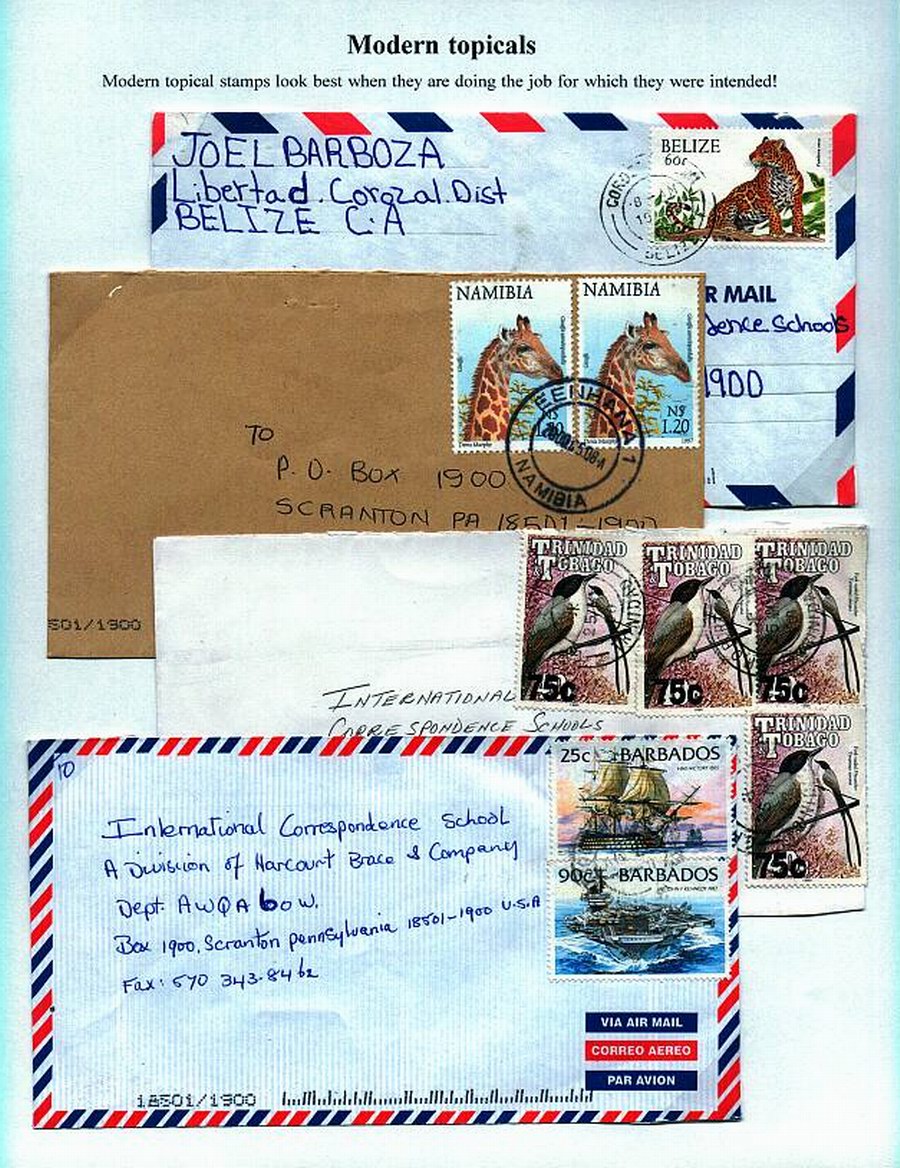 Modern topicals
Modern topical stamps look best when they are doing the job for which they were intended!
JOEL BARBOZA
Libertad. Corozal. Dist
BELIZE C.A
BELIZE
60c
BELIZE
R MAIL
dence Schools
1900
NAMIBIA
N$
1.20
1997
NAMIBIA
N$
1.20
EENHANA 1
NAMIBIA
TO
P.O. BOX 1900
SCRANTON PA 18501-1900
501/1900
TRINIDAD
& TOBAGO
75c
TRINIDAD
& TOBAGO
75c
TRINIDAD
& TOBAGO
75c
TRINIDAD
& TOBAGO
75c
INTERNATIONAL
CORRESPONDENCE SCHOOLS
TO
25c BARBADOS
90c BARBADOS
International Correspondence School
A Division of Harcourt Brace & Company
Dept. AWQA60W.
Box 1900, Scranton pennsylvania 18501-1900 U.S.A
Fax: 570 343-8462
VIA AIR MAIL
CORREO AEREO
PAR AVION
18501/1900